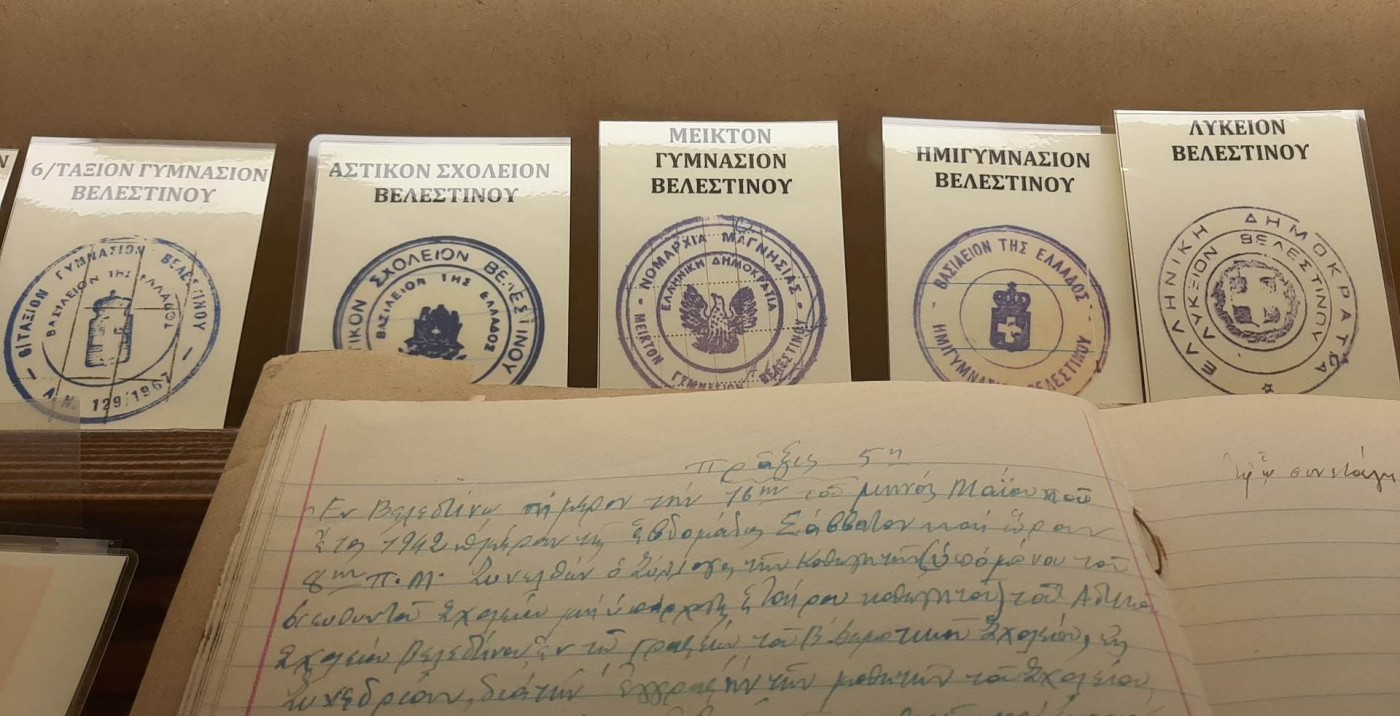 6/ΤΑΞΙΟΝ ΓΥΜΝΑΣΙΟΝ
ΒΕΛΕΣΤΙΝΟΥ
6/ΤΑΞΙΟΝ ΓΥΜΝΑΣΙΟΝ ΒΕΛΕΣΤΙΝΟΥ
ΒΑΣΙΛΕΙΟΝ ΤΗΣ ΕΛΛΑΔΟΣ
Α.Ν. 129/1967
ΑΣΤΙΚΟΝ ΣΧΟΛΕΙΟΝ
ΒΕΛΕΣΤΙΝΟΥ
ΤΙΚΟΝ ΣΧΟΛΕΙΟΝ ΒΕΛΕΣΤΙΝΟΥ
ΒΑΣΙΛΕΙΟΝ ΤΗΣ ΕΛΛΑΔΟΣ
ΜΕΙΚΤΟΝ
ΓΥΜΝΑΣΙΟΝ
ΒΕΛΕΣΤΙΝΟΥ
ΝΟΜΑΡΧΙΑ ΜΑΓΝΗΣΙΑΣ
ΕΛΛΗΝΙΚΗ ΔΗΜΟΚΡΑΤΙΑ
ΜΕΙΚΤΟΝ ΓΥΜΝΑΣΙΟΝ ΒΕΛΕΣΤΙΝΟΥ
ΗΜΙΓΥΜΝΑΣΙΟΝ
ΒΕΛΕΣΤΙΝΟΥ
ΒΑΣΙΛΕΙΟΝ ΤΗΣ ΕΛΛΑΔΟΣ
ΗΜΙΓΥΜΝΑΣΙΟΝ ΒΕΛΕΣΤΙΝΟΥ
ΛΥΚΕΙΟΝ
ΒΕΛΕΣΤΙΝΟΥ
ΕΛΛΗΝΙΚΗ ΔΗΜΟΚΡΑΤΙΑ
ΛΥΚΕΙΟΝ ΒΕΛΕΣΤΙΝΟΥ
Πρᾶξις 5η
Ἐν Βελεστίνῳ σήμερον τὴν 16ην τοῦ μηνός Μαΐου τοῦ
ἔτος 1942 ἡμέραν τῆς ἑβδομάδος Σάββατον καί ὥραν
8ην π.μ. Συνελθών ὁ Σύλλογος τῶν Καθηγητῶν
διευθυντοῦ Σχολείου καθηγητοῦ) τοῦ Ἀστικοῦ
Σχολείου Βελεστίνου ἐν τῷ γραφείῳ τοῦ Β΄ Δημοτικοῦ Σχολείου, εἰς
Συνεδρίαν, διά τήν ἐγγραφήν τῶν μαθητῶν τοῦ Σχολείου